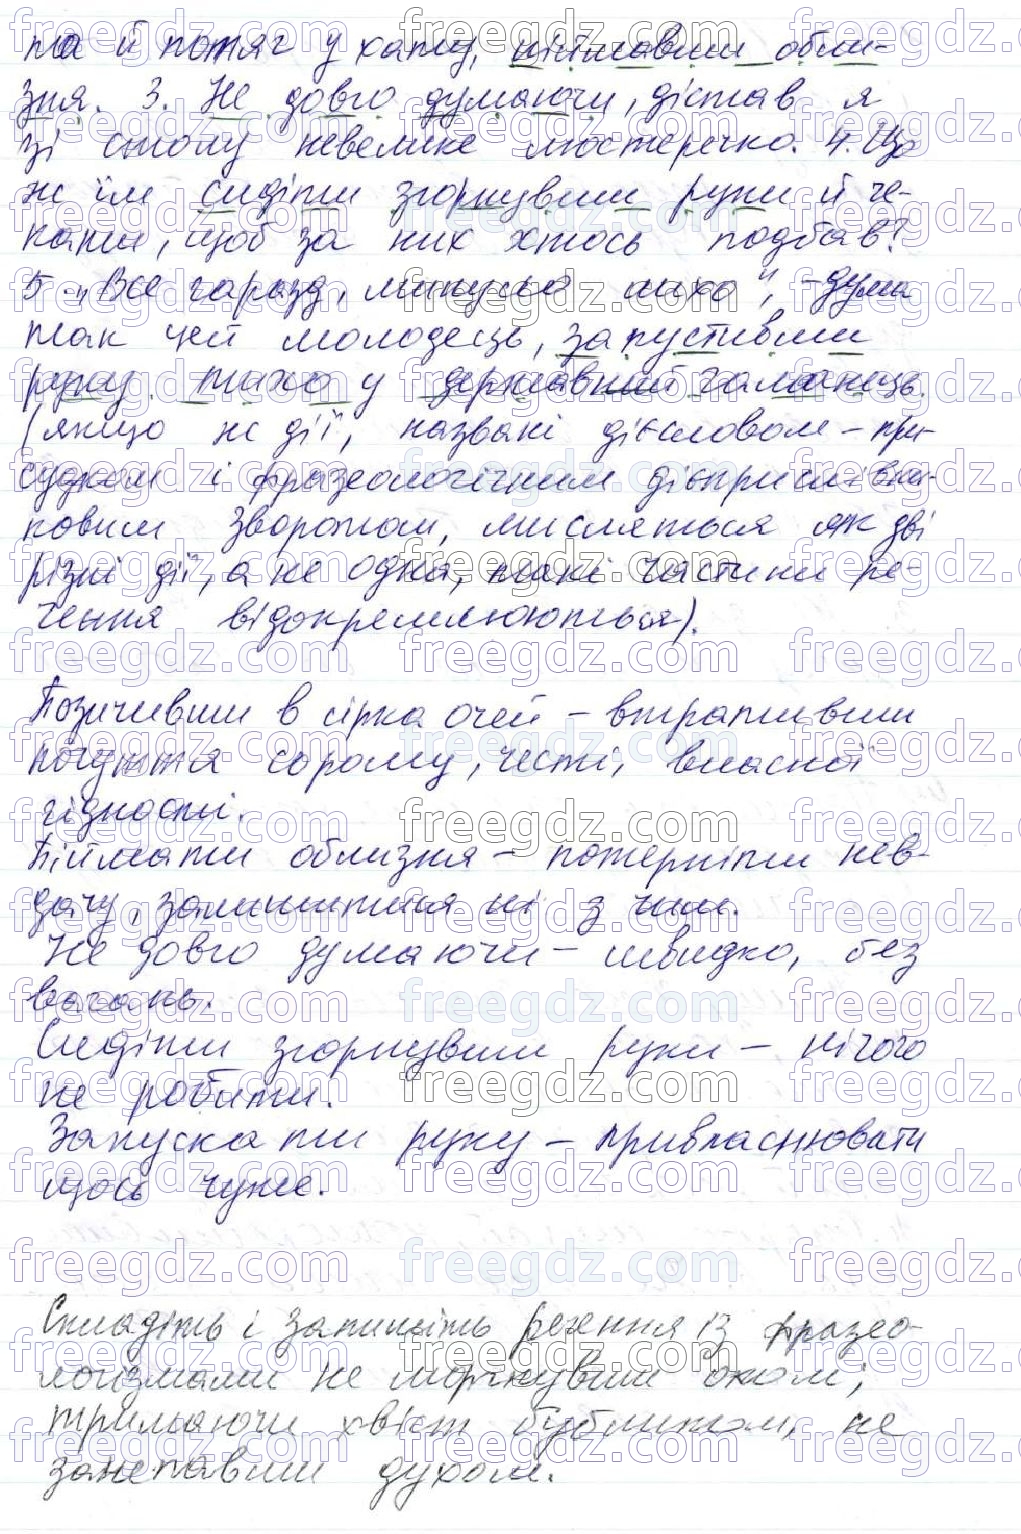 та й потяг у хату, піймавши обли-
зня. 3. Не довго думаючи, дістав я
зі столу невелике люстеречко. 4. Що
ж їм сидіти згорнувши руки й че-
кати, щоб за них хтось подбав?
5. „Все гаразд, минуло лихо", - дума
так цей молодець, запустивши
руку тихо у державний гаманець.
(якщо ж дії, названі дієсловом - при-
судком і фразеологічним дієприслівни-
ковим зворотом, мисляться як дві
різні дії, а не одна, такі частини ре-
чення відокремлюються).
Позичивши в сірка очей - втративши
почуття сорому, честі, власної
гідності.
Піймати облизня - потерпіти нев-
дачу, залишитися ні з чим.
Не довго думаючи - швидко, без
вагань.
Сидіти згорнувши руки - нічого
не робити.
Запускати руку - привласнювати
щось чуже.
Складіть і запишіть речення із фразео-
логізмами не моргнувши оком,
тримаючи хвіст бубликом, не
занепавши духом.
freegdz.com